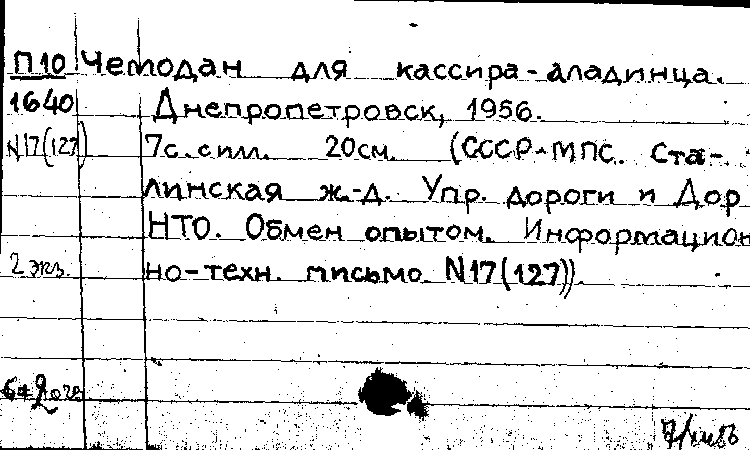 П10 Чемодан для кассира-аладинца.
1640 Днепропетровск, 1956.
N17(127) 7с.силл. 20см. (СССР-МПС. Ста-
линская ж.-д. Упр. дороги и Дор
НТО. Обмен опытом. Информацион
2 экз. но-техн. письмо N17(127)).